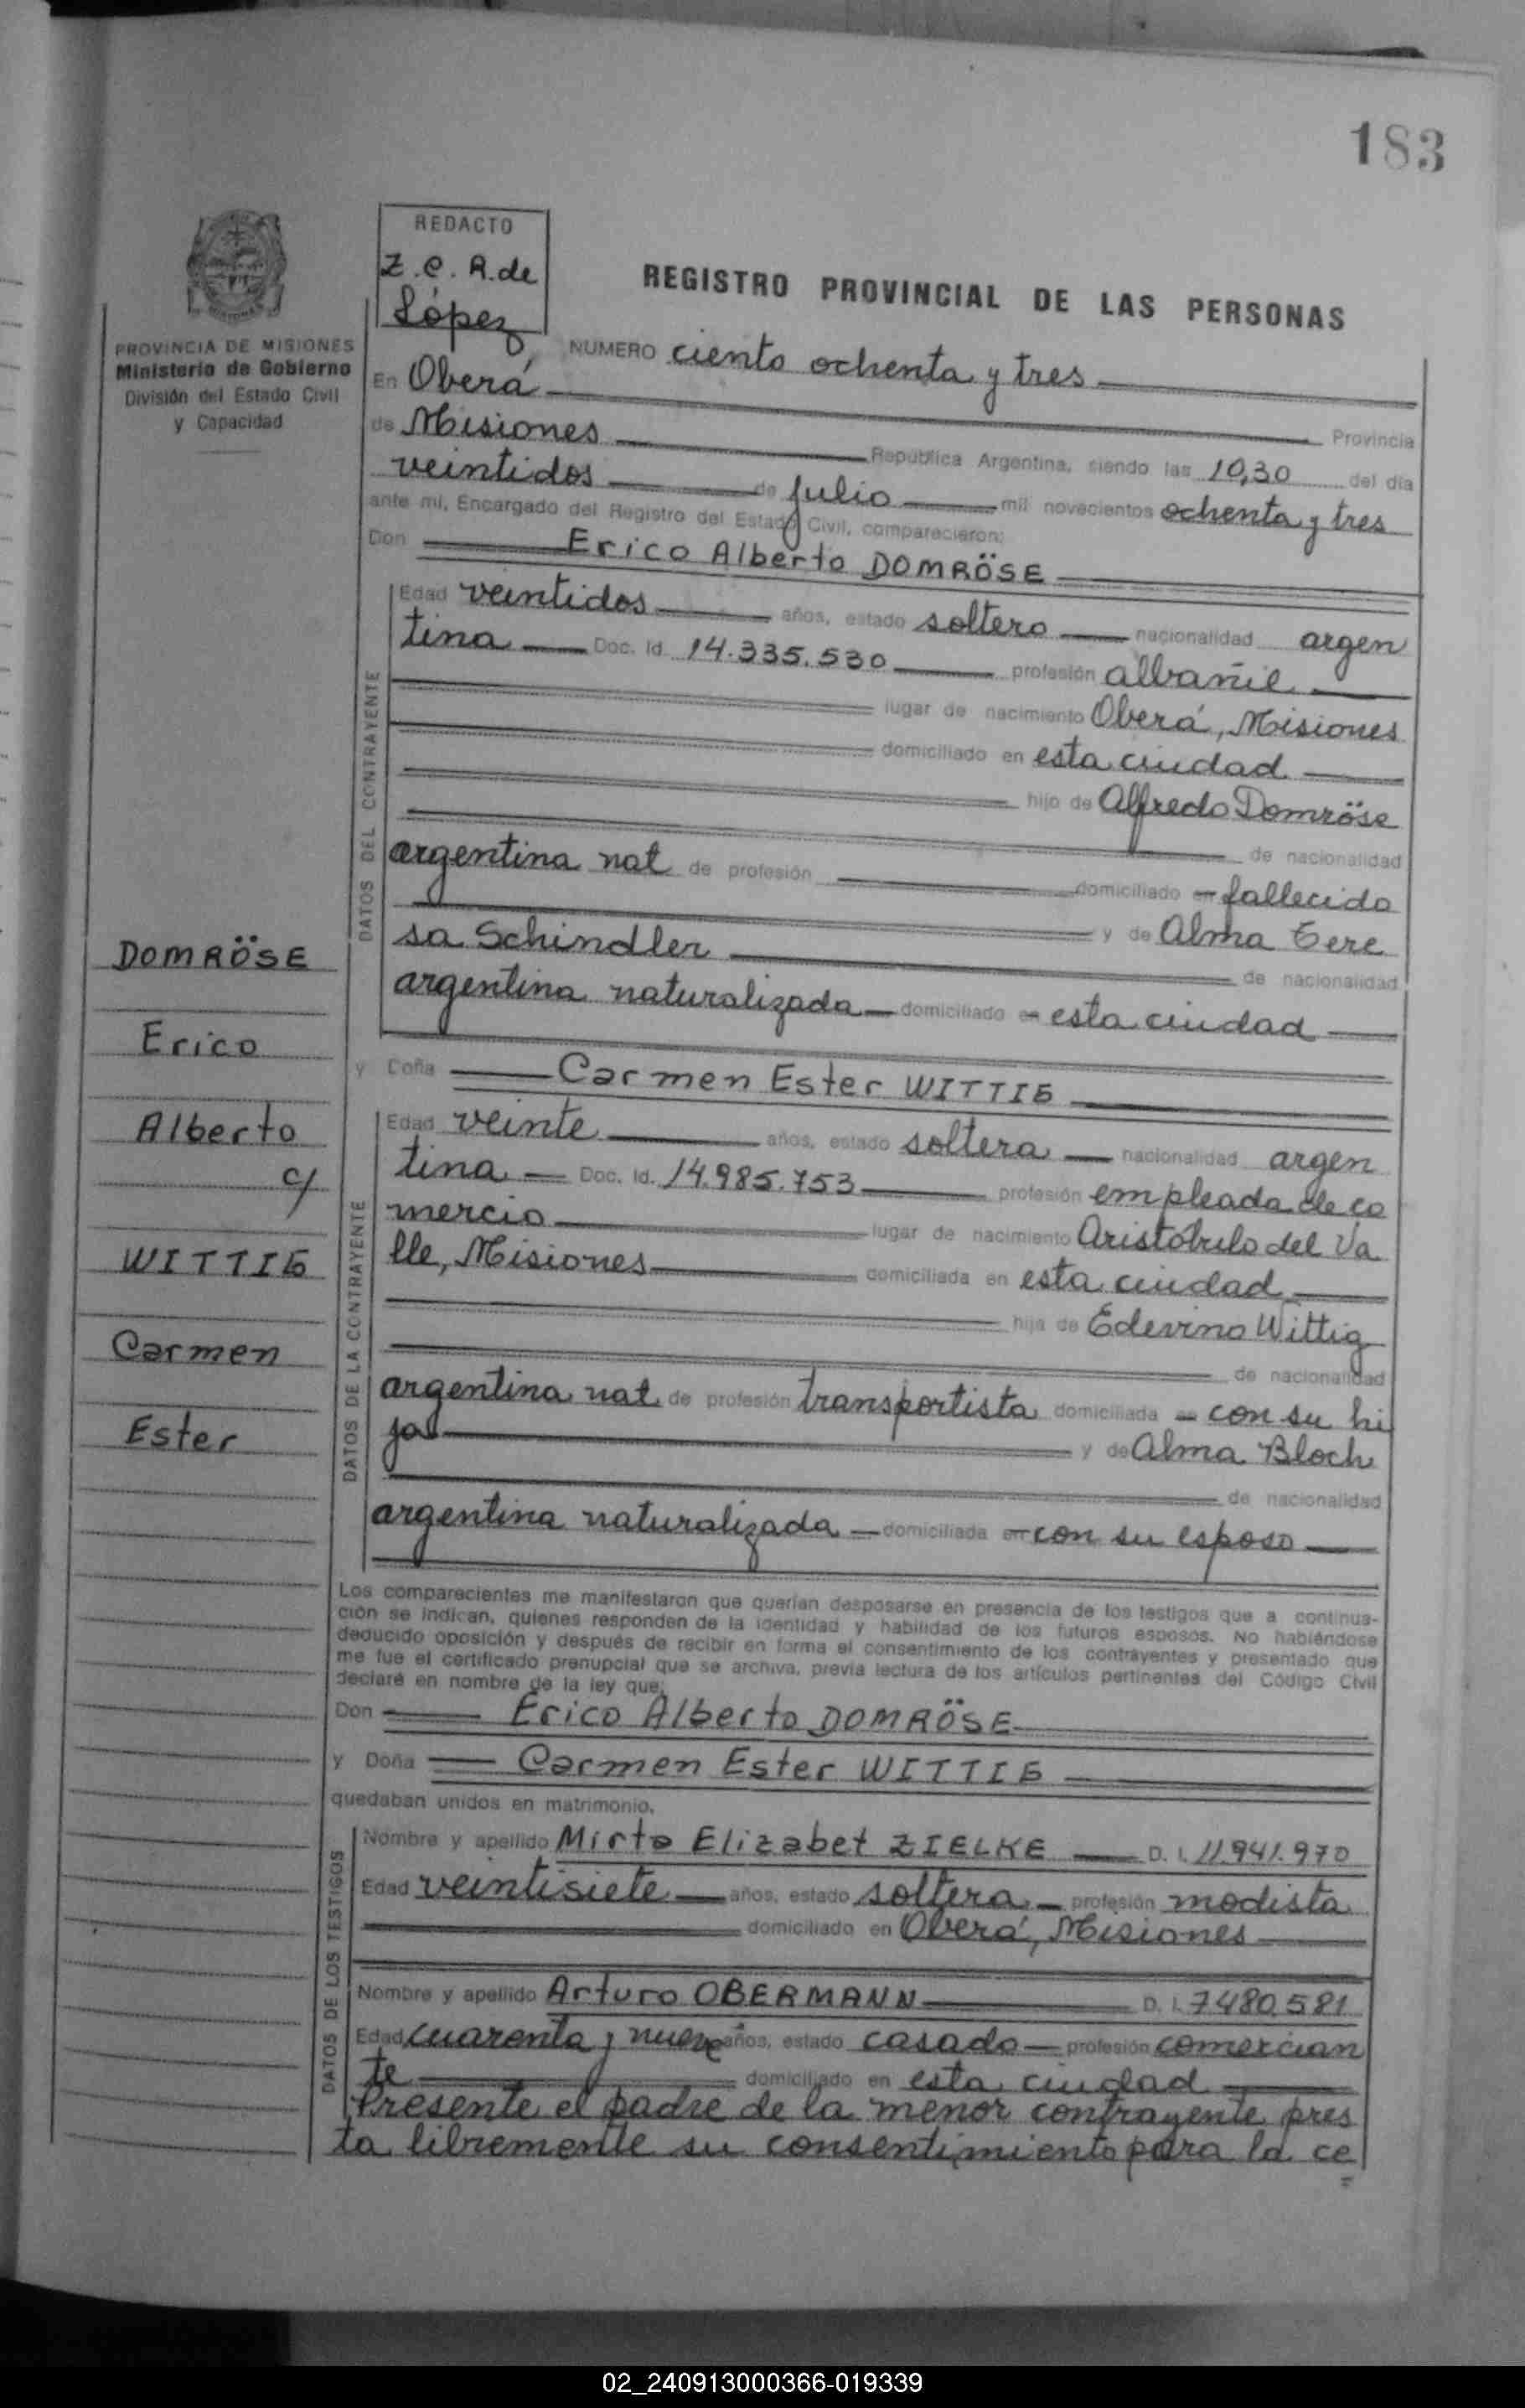 183
REDACTO
Z.C.R. de
López
REGISTRO PROVINCIAL DE LAS PERSONAS
PROVINCIA DE MISIONES
Ministerio de Gobierno
División del Estado Civil
y Capacidad
NUMERO ciento ochenta y tres
En Oberá
Provincia
de Misiones República Argentina, siendo las 10,30 del día
veintidos de julio mil novecientos ochenta y tres
ante mí, Encargado del Registro del Estado Civil, comparecieron:
Don Erico Alberto DOMRÖSE
DATOS DEL CONTRAYENTE
Edad veintidos años, estado soltero nacionalidad argen
tina Doc. Id. 14.335.530 profesión albañil
lugar de nacimiento Oberá, Misiones
domiciliado en esta ciudad
hijo de Alfredo Domröse
de nacionalidad
argentina nat de profesión domiciliado fallecido
y de Alma Tere
sa Schindler de nacionalidad
argentina naturalizada domiciliado en esta ciudad
y Doña Carmen Ester WITTIG
DATOS DE LA CONTRAYENTE
Edad veinte años, estado soltera nacionalidad argen
tina Doc. Id. 14.985.753 profesión empleada de co
mercio lugar de nacimiento Aristóbulo del Va
lle, Misiones domiciliada en esta ciudad
hija de Edevino Wittig
de nacionalidad
argentina nat. de profesión transportista domiciliada con su hi
ja y de Alma Bloch
de nacionalidad
argentina naturalizada domiciliada con su esposo
DOMRÖSE
Erico
Alberto
c/
WITTIG
Carmen
Ester
Los comparecientes me manifestaron que querían desposarse en presencia de los testigos que a continua-
ción se indican, quienes responden de la identidad y habilidad de los futuros esposos. No habiéndose
deducido oposición y después de recibir en forma el consentimiento de los contrayentes y presentado que
me fue el certificado prenupcial que se archiva, previa lectura de los artículos pertinentes del Código Civil
declaré en nombre de la ley que:
Don Erico Alberto DOMRÖSE
y Doña Carmen Ester WITTIG
quedaban unidos en matrimonio.
DATOS DE LOS TESTIGOS
Nombre y apellido Mirta Elizabet ZIELKE D. I. 11.941.970
Edad veintisiete años, estado soltera profesión modista
domiciliado en Oberá, Misiones
Nombre y apellido Arturo OBERMANN D. I. 7480.581
Edad cuarenta y nueve años, estado casado profesión comercian
te domiciliado en esta ciudad
Presente el padre de la menor contrayente pres
ta libremente su consentimiento para la ce
02_240913000366-019339